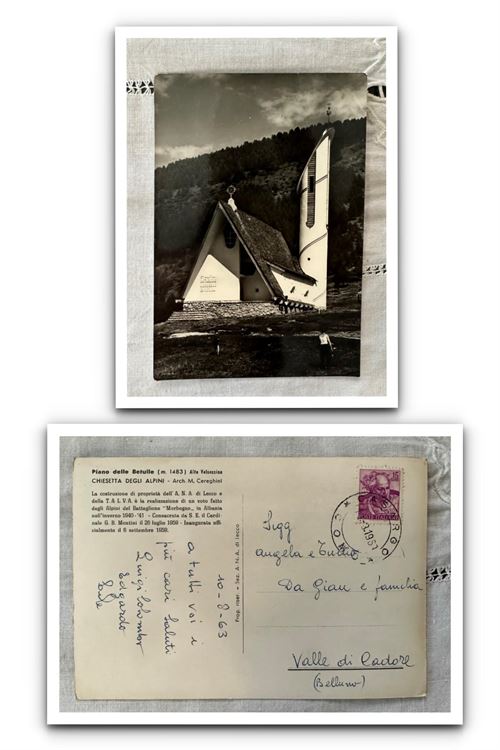 Piano delle Betulle (m. 1483) Alta Valsassina
CHIESETTA DEGLI ALPINI - Arch. M. Cereghini
La costruzione di proprietà dell'A. N. A. di Lecco e
della T. A. L. V. A. è la realizzazione di un voto fatto
degli Alpini del Battaglione "Morbegno„ in Albania
nell'inverno 1940-'41 - Consacrata da S. E. il Cardi-
nale G. B. Montini il 26 luglio 1959 - Inaugurata uffi-
cialmente il 6 settembre 1959.
10-8-63
a tutti voi i
più cari saluti
Luigi Colombo
Edgardo
Prop. riser. - Sez. A. N. A. di Lecco
Sigg
Angela e Tullio
Da Gian e famiglia
Valle di Cadore
(Belluno)
POSTE ITALIANE